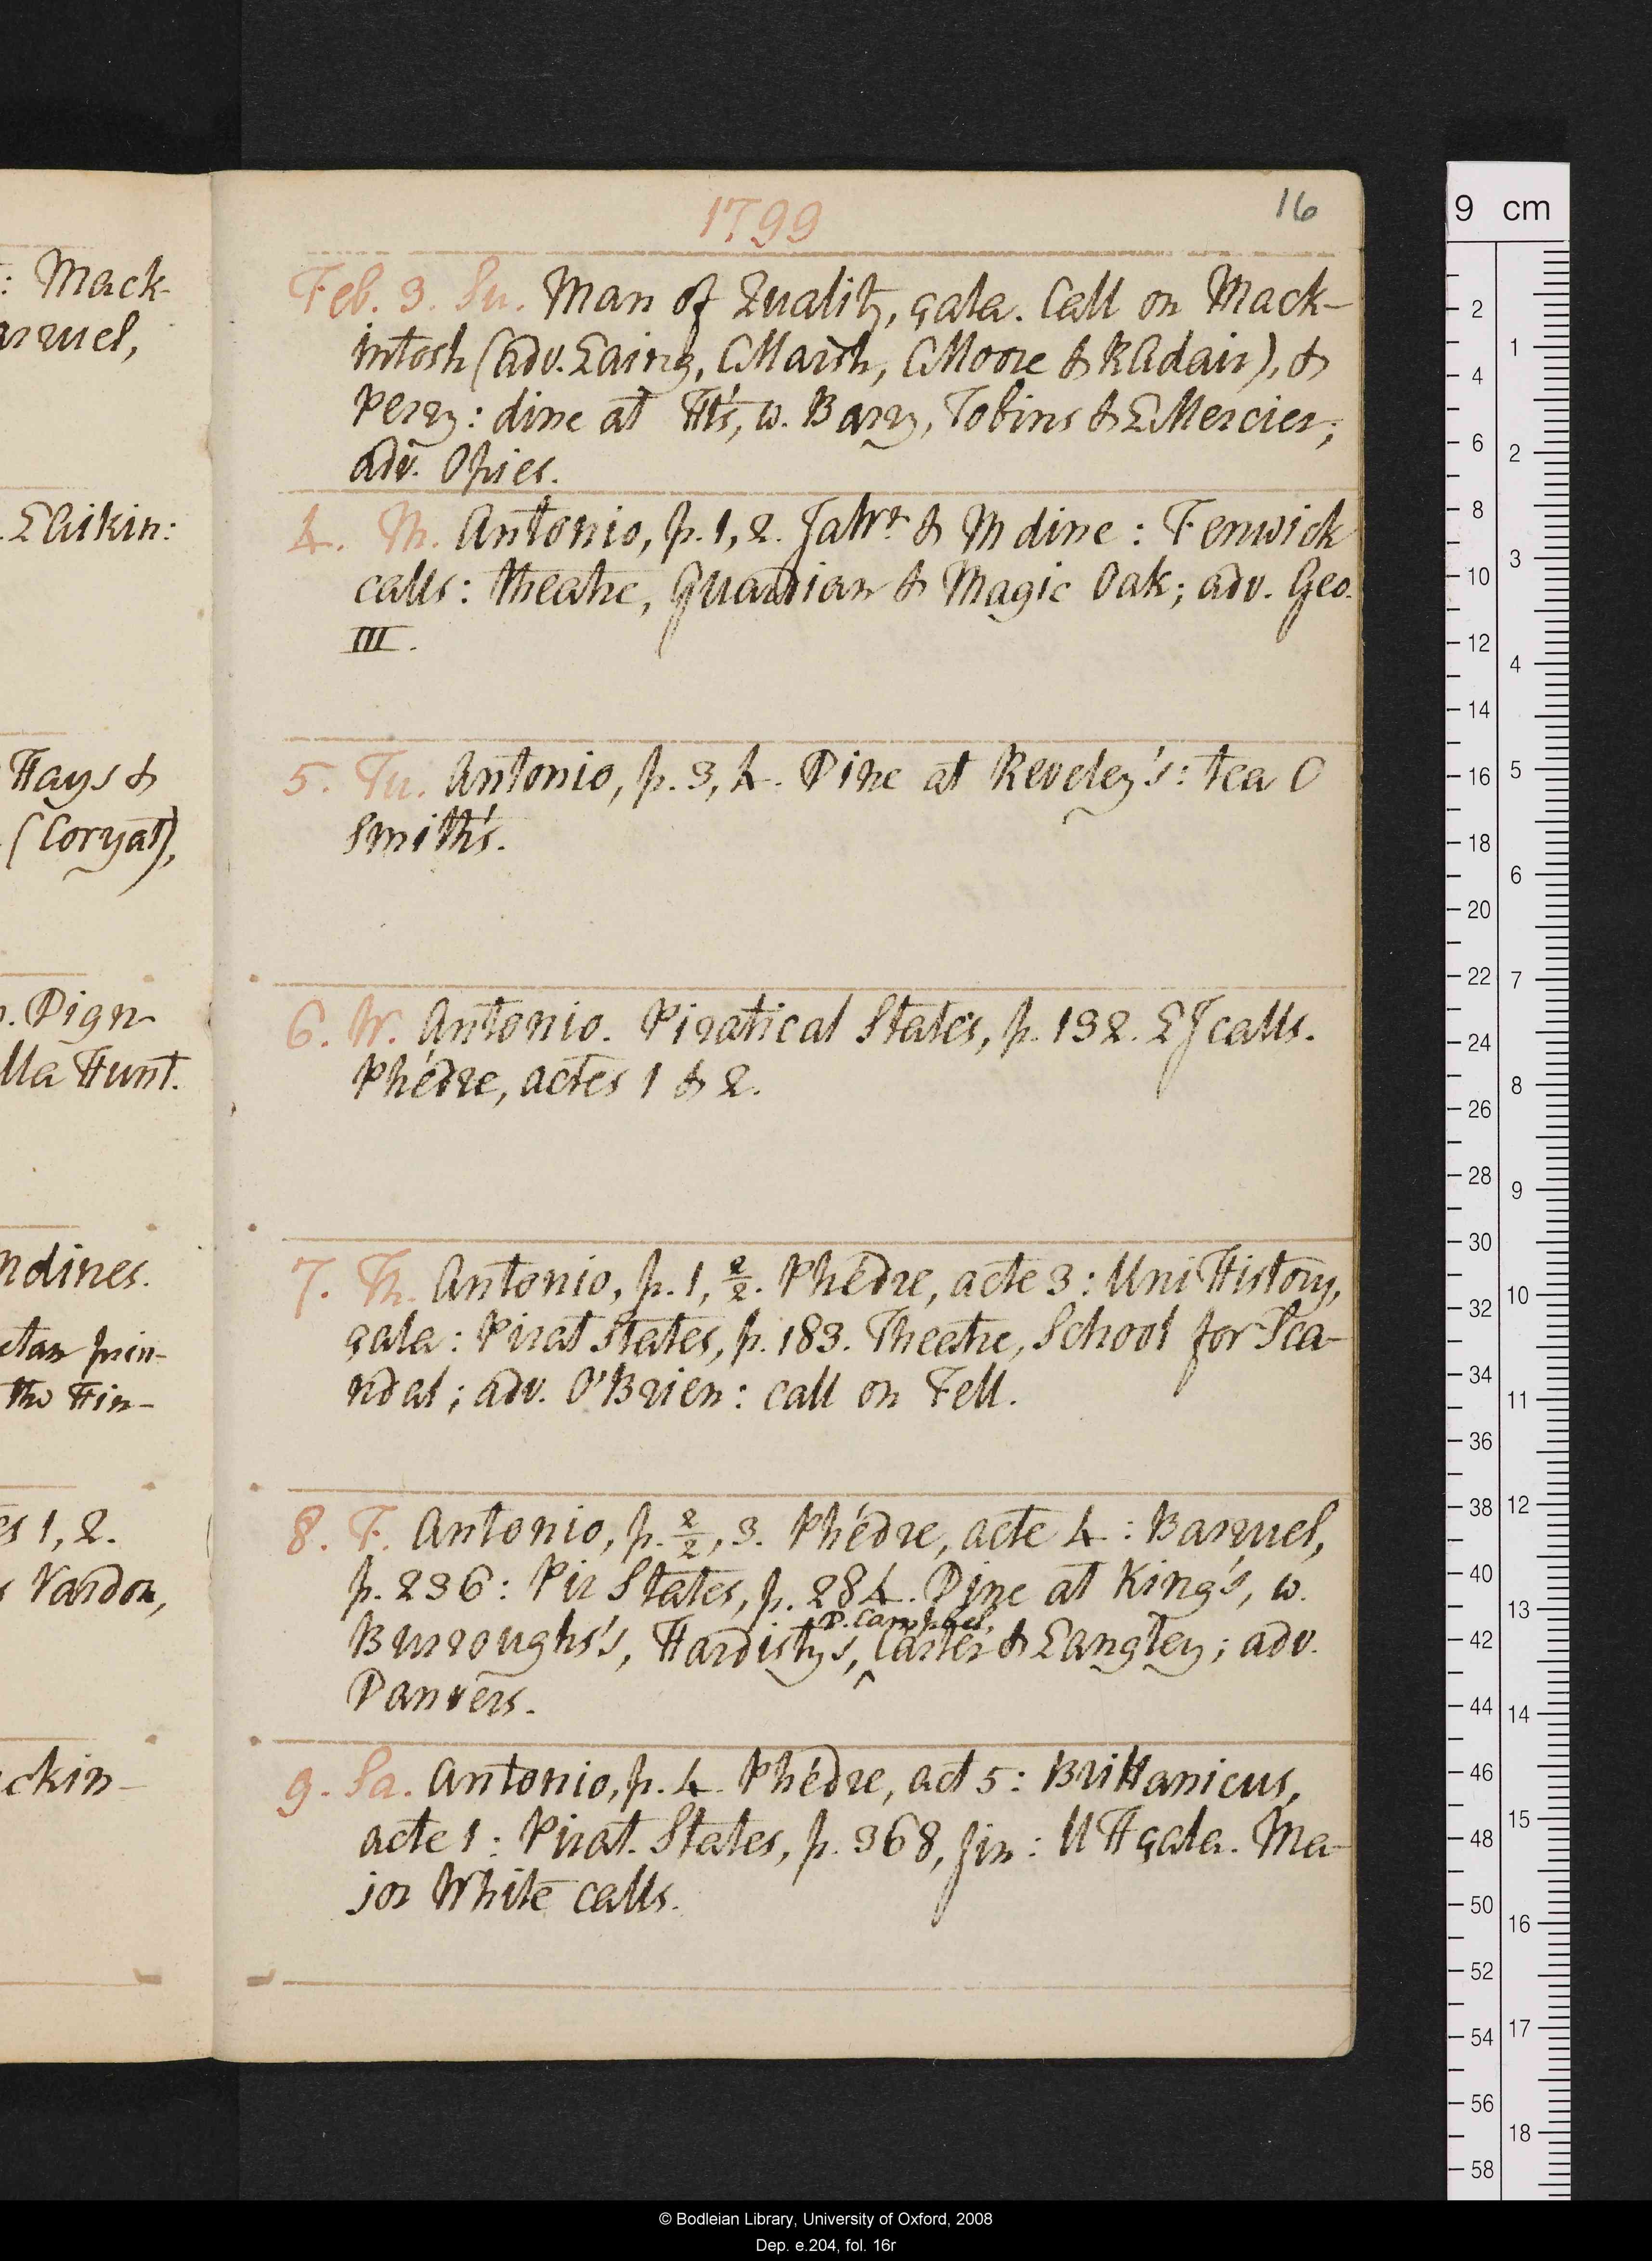 : Mack-
arruel,
. LAikin:
Hays &
(Coryat),
. Dign
lla Hunt.
ndines.
ctan prin-
the Hin-
es 1, 2.
s Vardon,
ckin-
1799
16
Feb. 3. Su. Man of Quality, çala. Call on Mack-
intosh (adv. Laing, CMarsh, CMoore & RAdair), &
Perry: dine at Ht's, w. Barry, Tobins & LMercier;
adv. Opies.
4. M. Antonio, p. 1, 2. JaWr & M dine: Fenwick
calls: theatre, Guardian & Magic Oak; adv. Geo.
III.
5. Tu. Antonio, p. 3, 4. Dine at Reveley's: tea C
Smith's.
6. W. Antonio. Piratical States, p. 132. LJ calls.
Phédre, actes 1 & 2.
7. Th. Antonio, p. 1, 2/2. Phédre, acte 3: Uni History,
çala: Pirat States, p. 183. Theatre, School for Sca-
ndal; adv. O'Brien: call on Fell.
8. F. Antonio, p. 2/2, 3. Phédre, acte 4: Barruel,
p. 236: Pir States, p. 284. Dine at King's, w.
D. Campbel,
Burroughs's, Hardisty's, ^ Carter & Langley; adv.
Danvers.
9. Sa. Antonio, p. 4. Phédre, act 5: Brittanicus,
acte 1: Pirat. States, p. 368, fin: UH çala. Ma-
jor White calls.
9 cm
2
4
6
8
10
12
14
16
18
20
22
24
26
28
30
32
34
36
38
40
42
44
46
48
50
52
54
56
58
1
2
3
4
5
6
7
8
9
10
11
12
13
14
15
16
17
18
© Bodleian Library, University of Oxford, 2008
Dep. e.204, fol. 16r